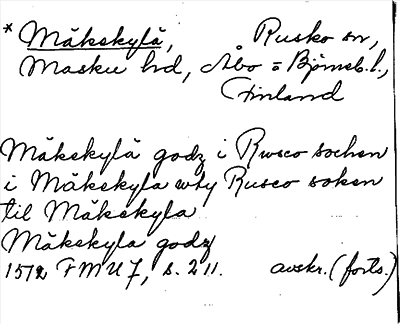 * Mäkskylä, Rusko sn,
Masku hd, Åbo = Björneb. l.,
Finland
Mäkskylä godz i Rwsco sochen
i Mäkskyla wty Rusco soken
til Mäkskyla
Mäkskyla godz
1512 FMU 7, s. 211. avskr. (forts.)